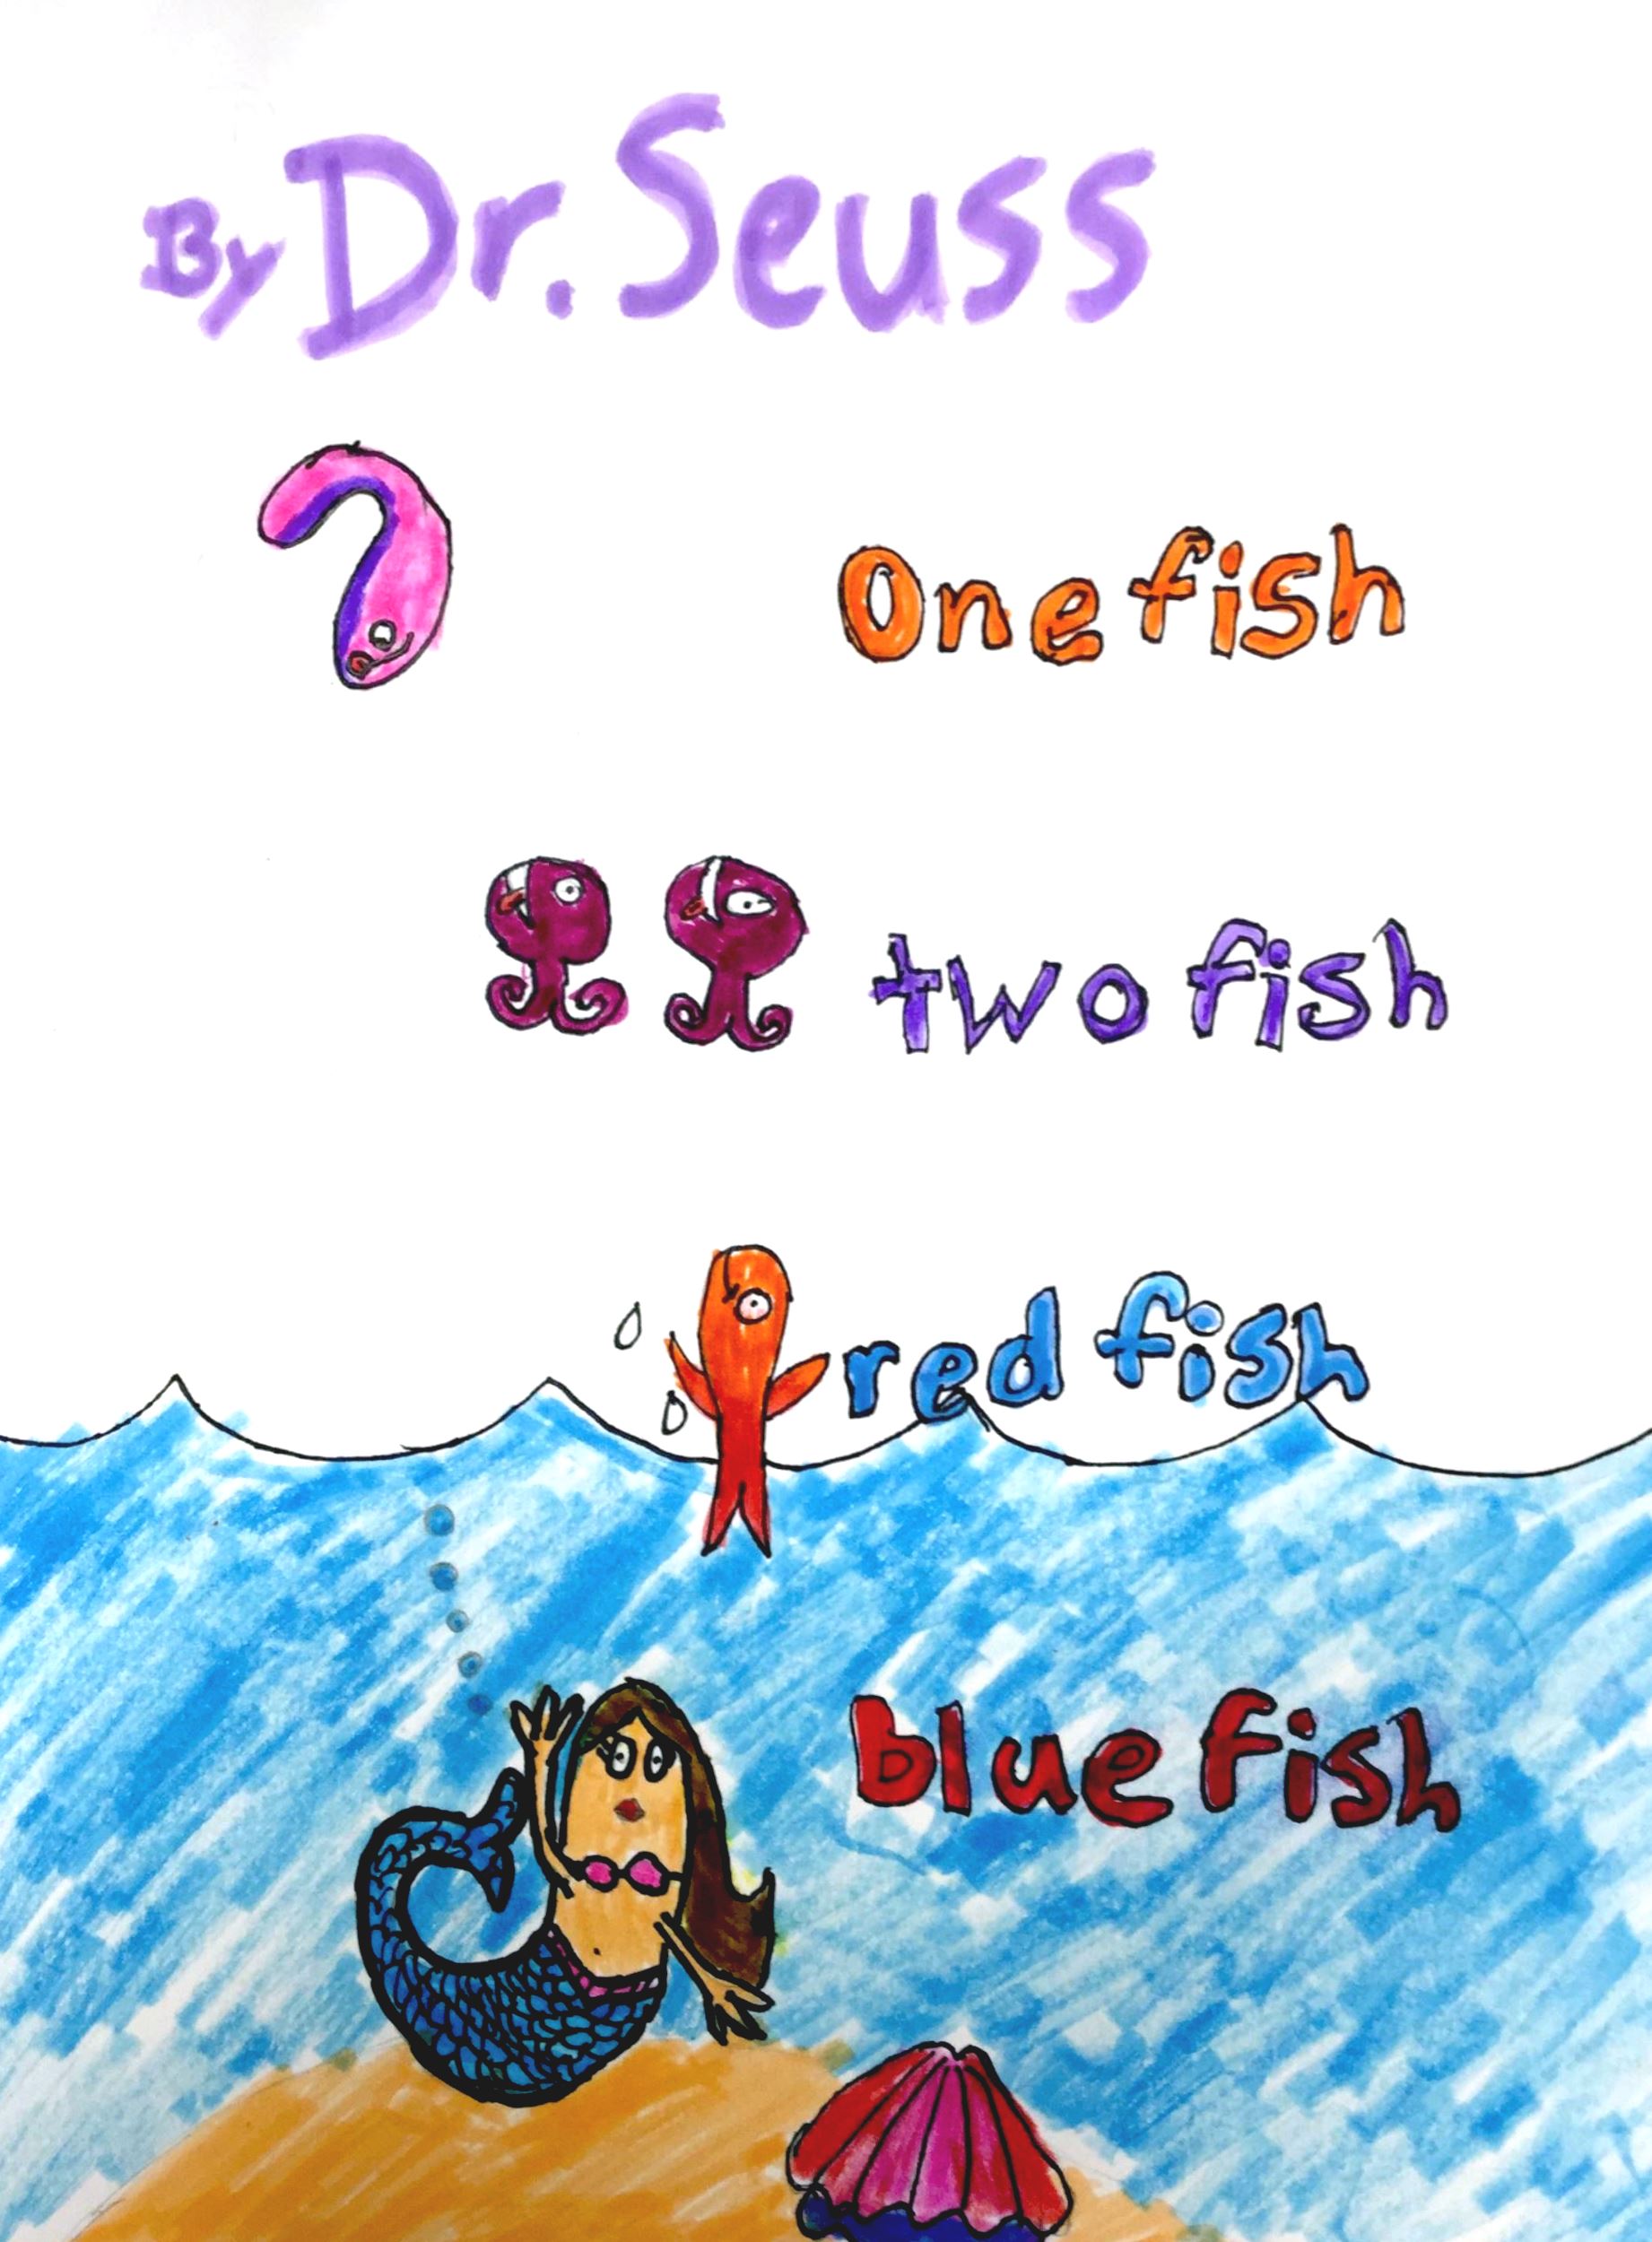 By Dr. Seuss
One fish
two fish
red fish
blue fish